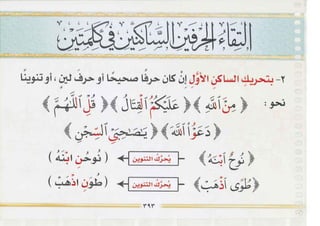 التقاء الحرفين الساكنين في كلمتين
٢- بتحريكِ الساكنِ الأوَّلِ إنْ كان حرفًا صحيحًا او حرفَ لينٍ ، أو تنوينًا
نحو : ﴿ مِنَ ٱللَّهِ ﴾ ﴿ عَلَيْكُمُ ٱلْقِتَالُ ﴾ ﴿ قُلِ ٱللَّهُمَّ ﴾
﴿ دَعَوُا ٱللَّهَ ﴾ ﴿ يَـٰصَـٰحِبَىِ ٱلسِّجْنِ ﴾
﴿ نُوحٌ ٱبْنَهُ ﴾ يُحرَّك التنوين ( نُوحُنِ ابْنَهُ )
﴿ طُوًى ٱذْهَبْ ﴾ يُحرَّك التنوين ( طُوَنِ اذْهَبْ )
٣٩٣